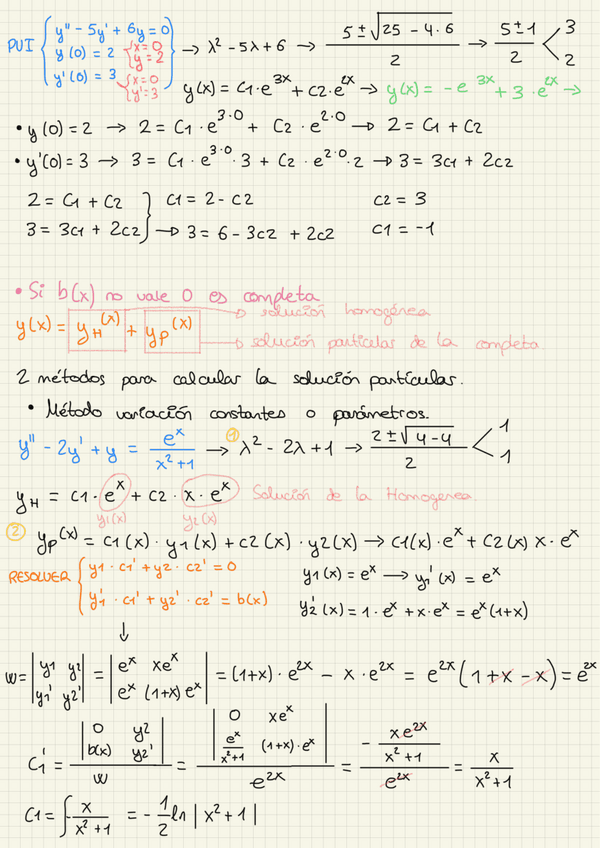 PVI { y'' - 5y' + 6y = 0 → λ² - 5λ + 6 → (5 ± √(25 - 4·6))/2 → (5 ± 1)/2 < 3 2
y(0) = 2 { x=0 y=2
y'(0) = 3 { x=0 y'=3
y(x) = C1·e^3x + C2·e^2x → y(x) = -e^3x + 3·e^2x →
• y(0) = 2 → 2 = C1·e^3·0 + C2·e^2·0 → 2 = C1 + C2
• y'(0) = 3 → 3 = C1·e^3·0·3 + C2·e^2·0·2 → 3 = 3C1 + 2C2
2 = C1 + C2 } C1 = 2 - C2 C2 = 3
3 = 3C1 + 2C2 → 3 = 6 - 3C2 + 2C2 C1 = -1
• Si b(x) no vale 0 es completa
y(x) = yH(x) + yp(x) → solución homogénea
→ solución partículas de la completa
2 métodos para calcular la solución partícular.
• Método variación constantes o parámetros.
y'' - 2y' + y = e^x/(x²+1) → ① λ² - 2λ + 1 → (2 ± √(4-4))/2 < 1 1
yH = C1·e^x + C2·x·e^x Solución de la Homogenea
y1(x) y2(x)
② yp(x) = C1(x)·y1(x) + C2(x)·y2(x) → C1(x)·e^x + C2(x) x·e^x
RESOLVER { y1·C1' + y2·C2' = 0 y1(x) = e^x → y1'(x) = e^x
y1'·C1' + y2'·C2' = b(x) y2'(x) = 1·e^x + x·e^x = e^x(1+x)
↓
W = |y1 y2; y1' y2'| = |e^x xe^x; e^x (1+x)e^x| = (1+x)·e^2x - x·e^2x = e^2x(1+x-x) = e^2x
C1' = |0 y2; b(x) y2'|/W = |0 xe^x; e^x/(x²+1) (1+x)·e^x|/e^2x = (-xe^2x/(x²+1))/e^2x = x/(x²+1)
C1 = ∫-x/(x²+1) = -1/2 ln|x²+1|